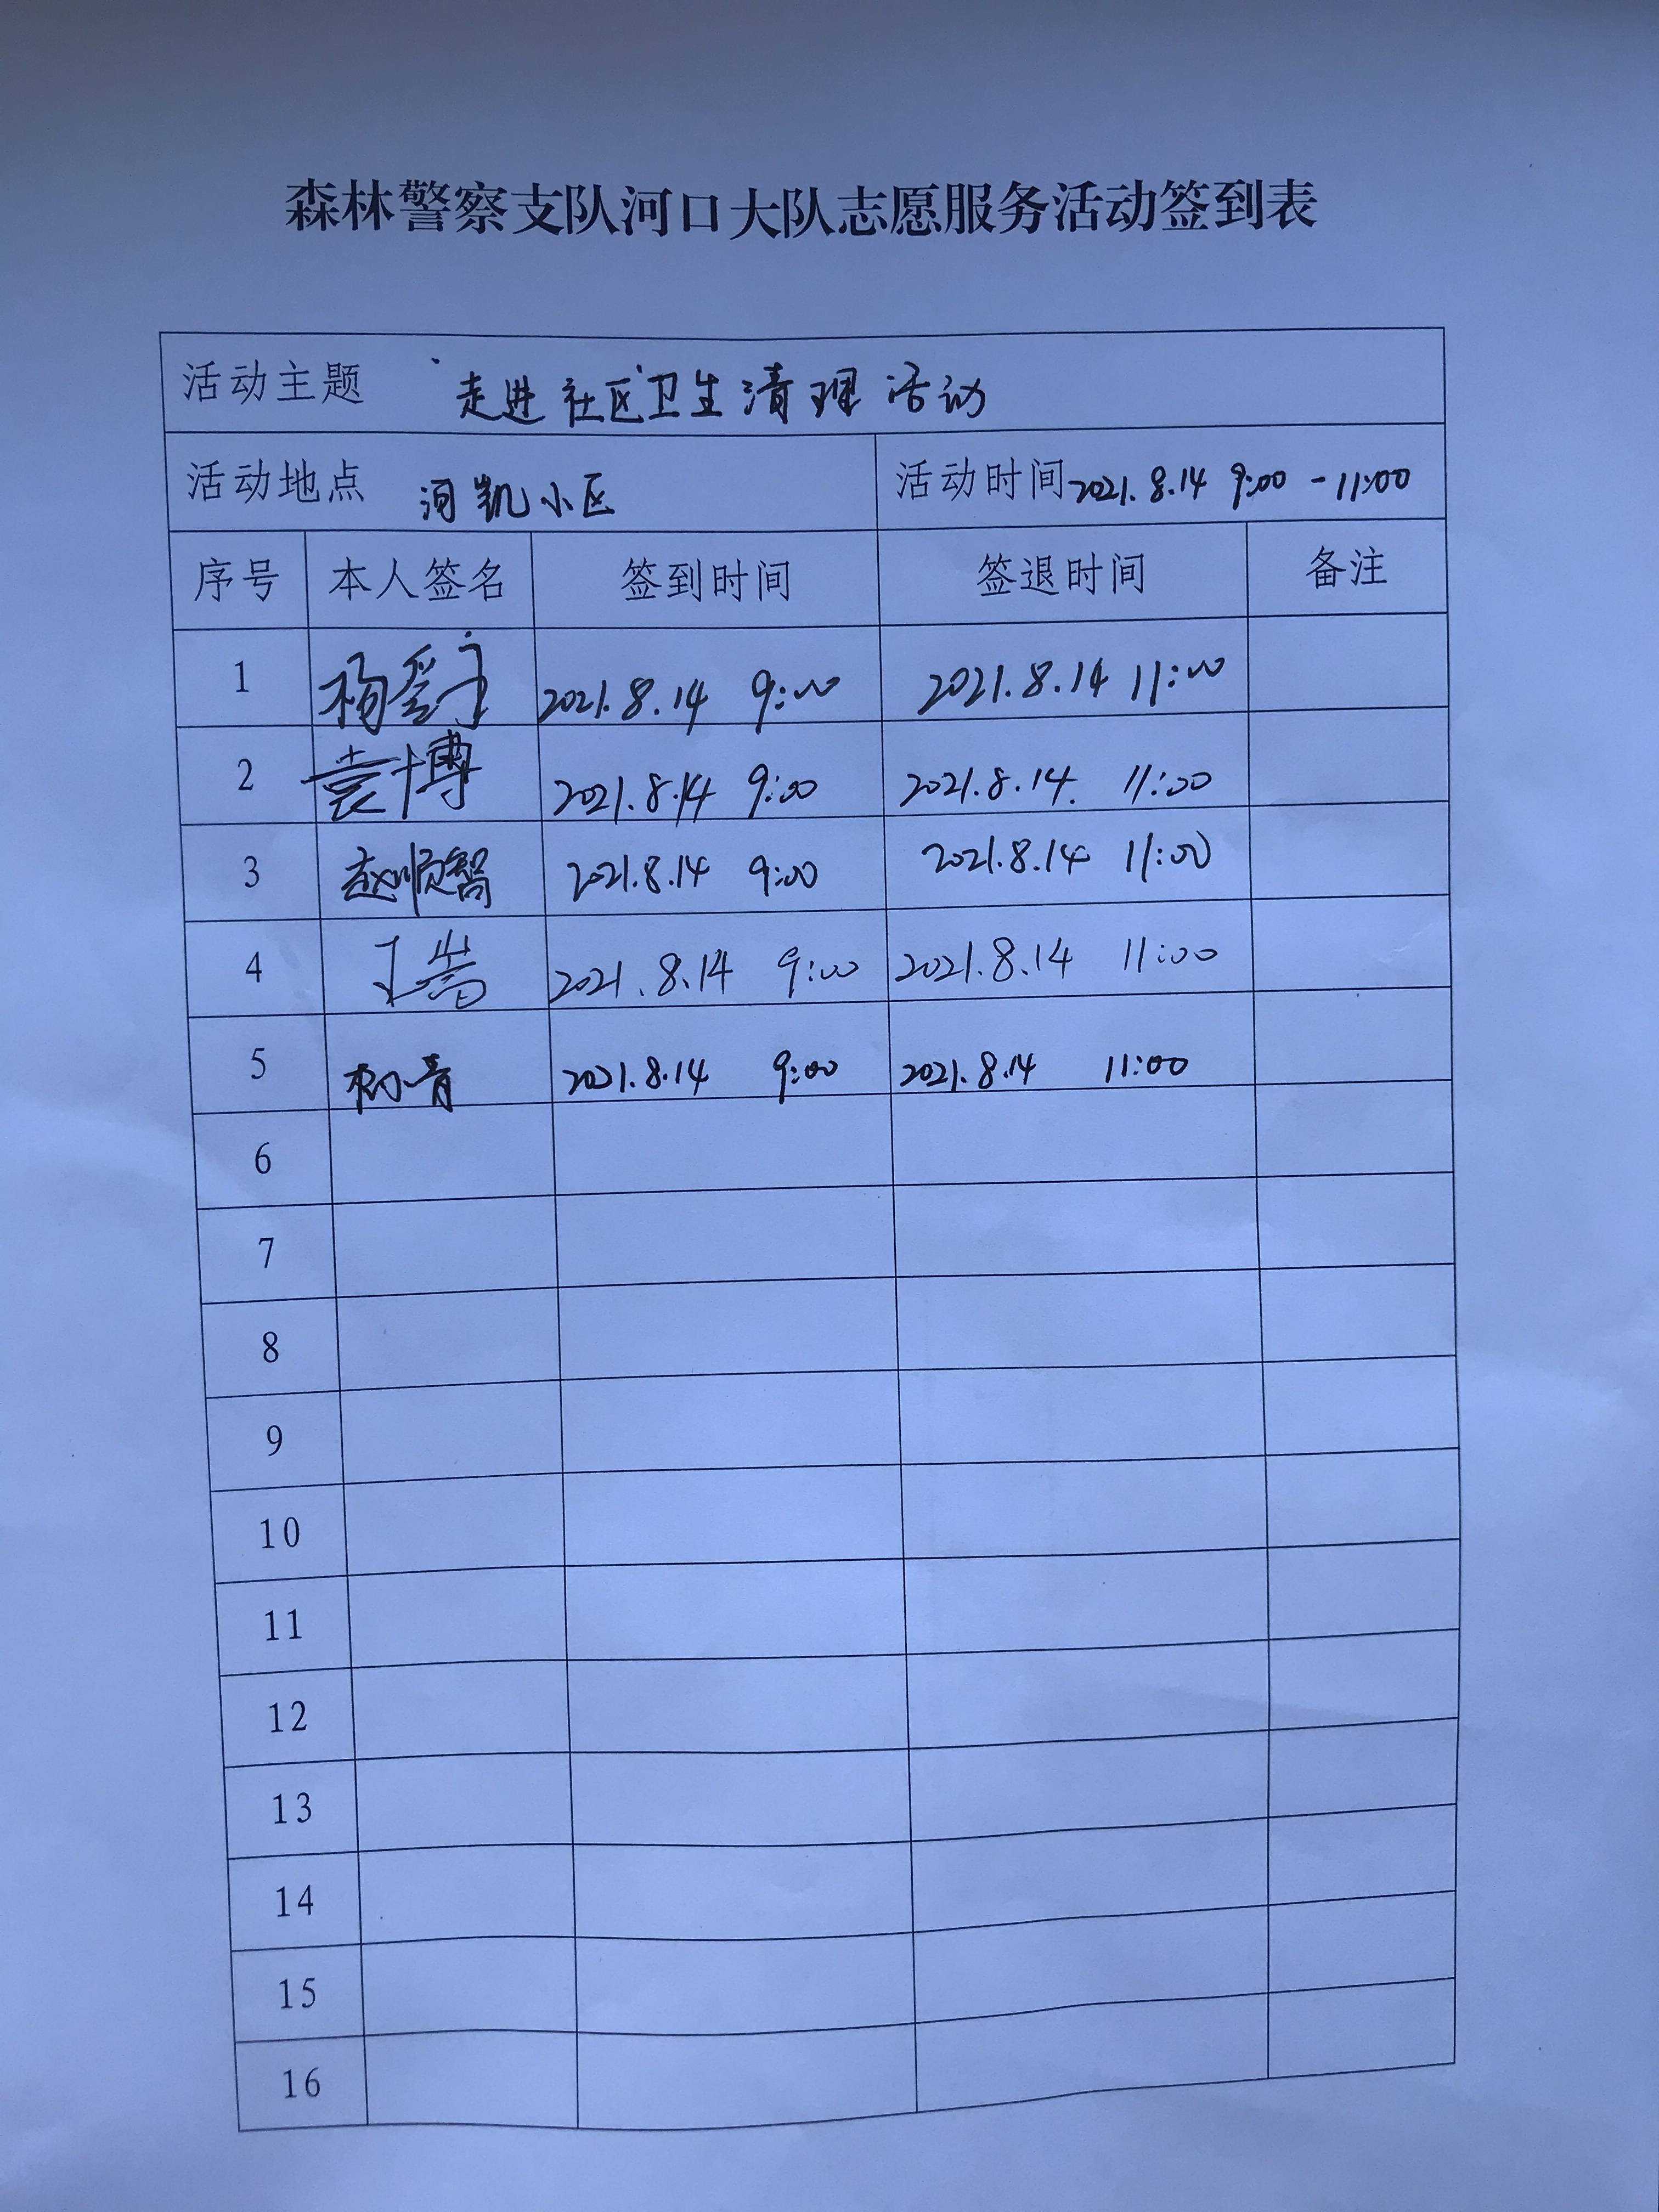 森林警察支队河口大队志愿服务活动签到表
活动主题 "走进社区"卫生清理活动
活动地点 河凯小区 活动时间 2021.8.14 9:00-11:00
序号 本人签名 签到时间 签退时间 备注
1 2021.8.14 9:00 2021.8.14 11:00
2 袁博 2021.8.14 9:00 2021.8.14. 11:00
3 赵顺智 2021.8.14 9:00 2021.8.14 11:00
4 王嵩 2021.8.14 9:00 2021.8.14 11:00
5 2021.8.14 9:00 2021.8.14 11:00
6
7
8
9
10
11
12
13
14
15
16